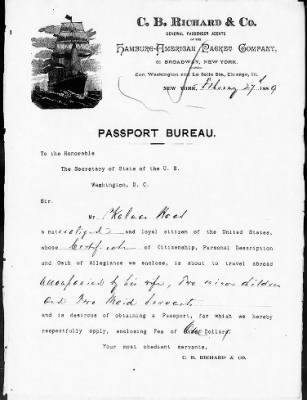 C. B. RICHARD & CO.
GENERAL PASSENGER AGENTS
OF THE
HAMBURG-AMERICAN PACKET COMPANY,
61 BROADWAY, NEW YORK.
COR. WASHINGTON AND LA SALLE STS., CHICAGO, ILL.
NEW YORK, February 27th 1889
PASSPORT BUREAU.
To the Honorable
The Secretary of State of the U. S.
Washington, D. C.
Sir.
Mr.
a naturalized and loyal citizen of the United States,
whose Certificate of Citizenship, Personal Description
and Oath of Allegiance we enclose, is about to travel abroad
accompanied by his wife, Two minor children
and Two Maid Servants
and is desirous of obtaining a Passport, for which we hereby
respectfully apply, enclosing Fee of One Dollar,
Your most obedient servants,
C. B. RICHARD & CO.